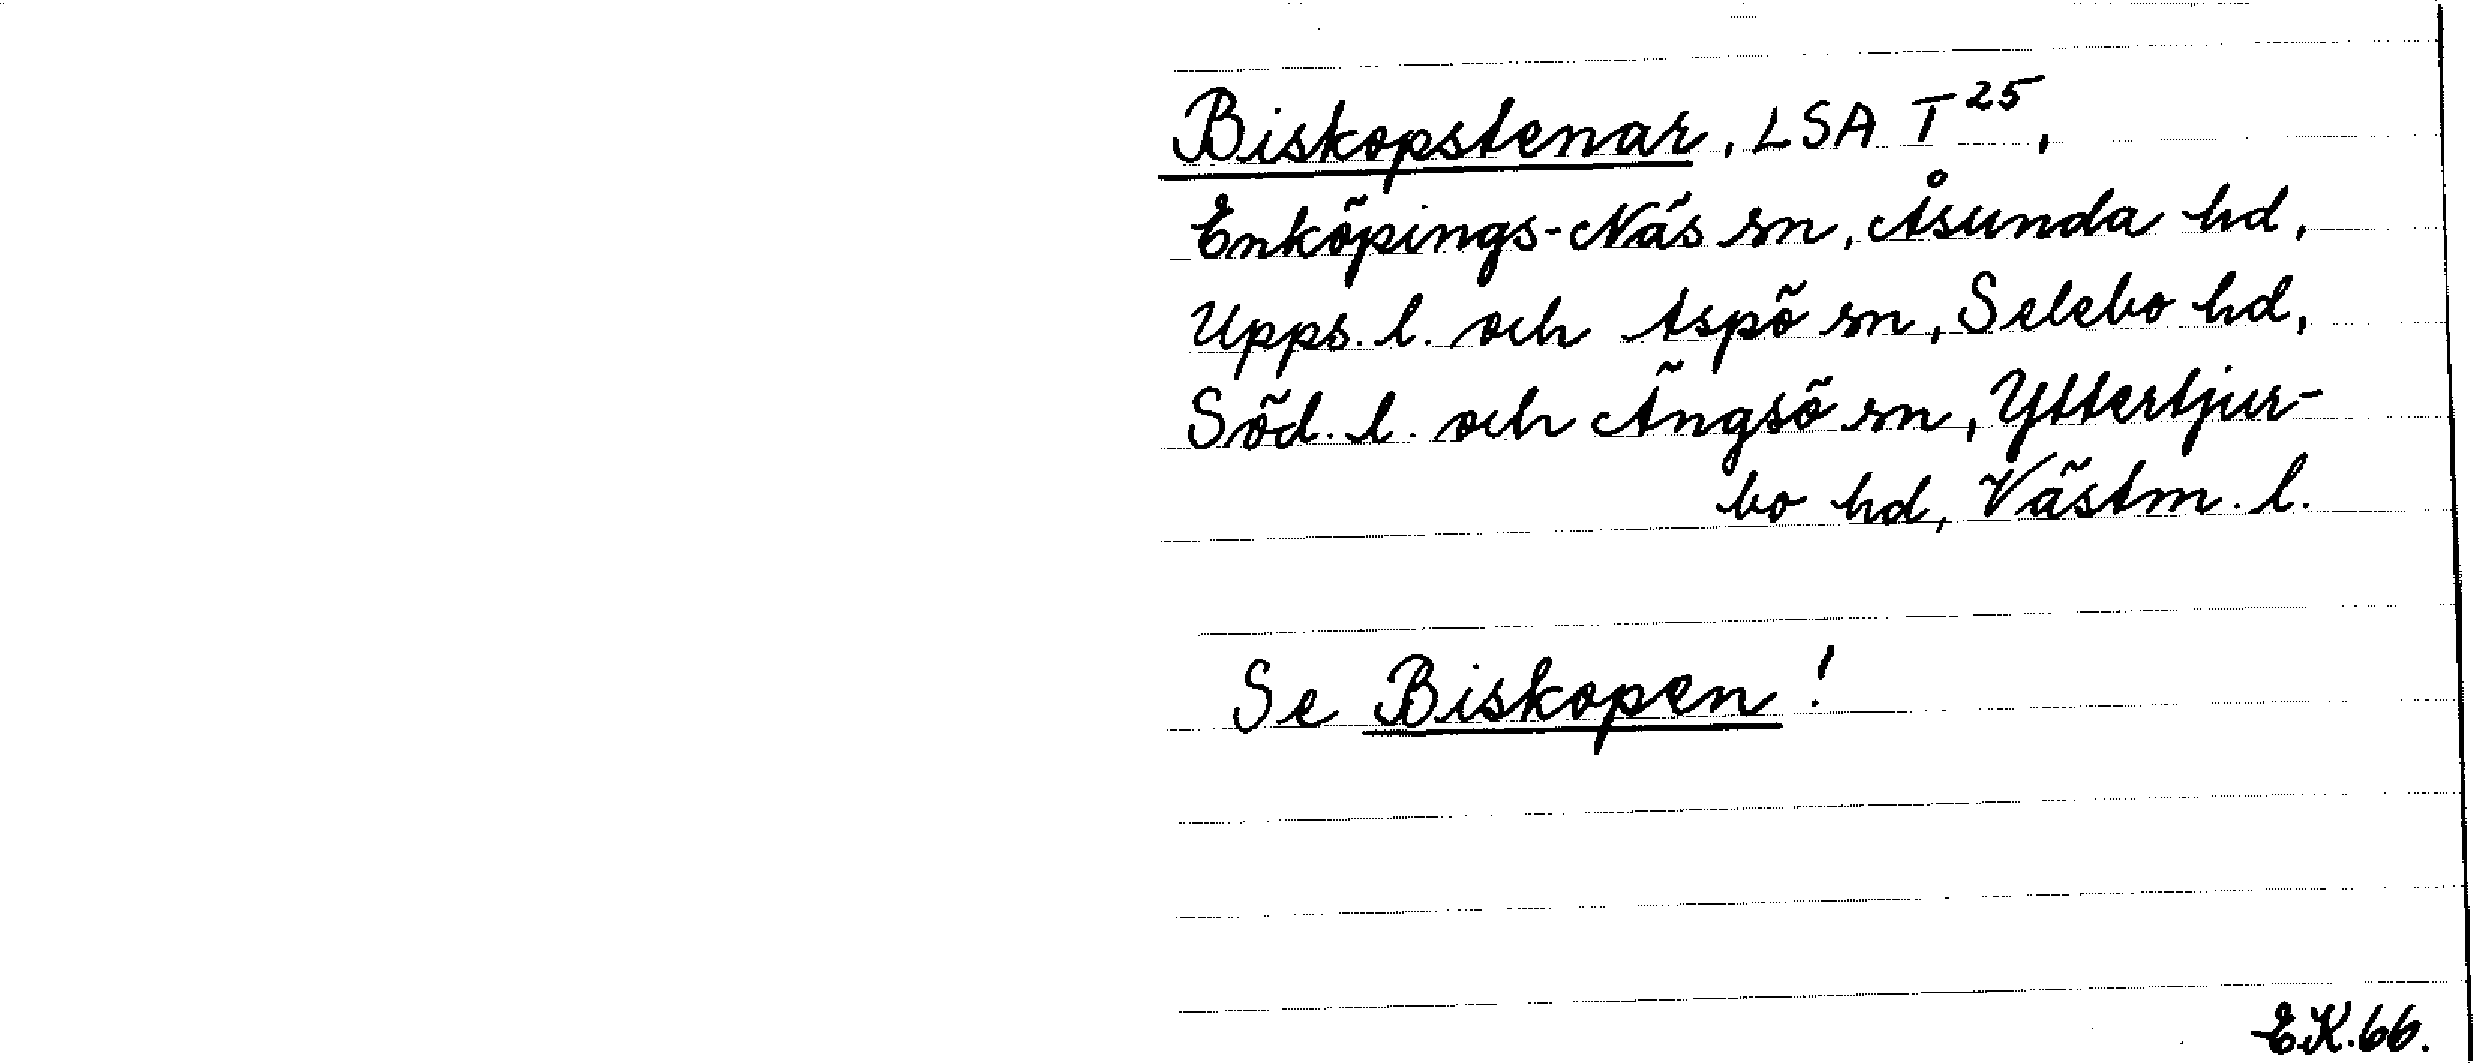 Biskopstenar, LSA T 25,
Enköpings-Näs sn, Åsunda hd,
Upps. l. och Aspö sn, Selebo hd,
Söd. l. och Ängsö sn, Yttertjur-
bo hd, Västm. l.
Se Biskopen!
E.K. 66.